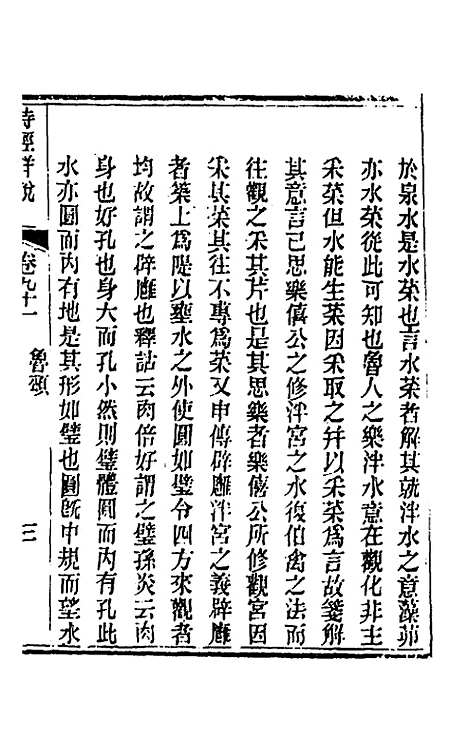 於泉水是水菜也言水菜者解其就泮水之意藻茆
亦水菜從此可知也魯人之樂泮水意在觀化非主
采菜但水能生菜因采取之幷以采菜爲言故箋解
其意言己思樂僖公之修泮宮之水復伯禽之法而
往觀之采其芹也是其思樂者樂僖公所修觀宮因
采其菜其往不專爲菜又申傳辟廱泮宮之義辟廱
者築土爲隄以壅水之外使圓如璧令四方來觀者
均故謂之辟廱也釋詁云肉倍好謂之璧孫炎云肉
身也好孔也身大而孔小然則璧體圓而內有孔此
水亦圓而內有地是其形如璧也圓旣中規而望水
詩經詳說 卷九十一 魯頌 三